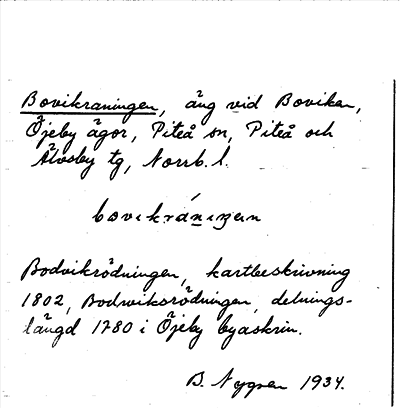 Bovikraningen, äng vid Boviken,
Öjeby ägor, Piteå sn, Piteå och
Älvsby tg, Norrb. l.
bovikránıŋən
Bodvikrödningen, kartbeskrivning
1802, Bodwiksrödningen, delnings-
längd 1780 i Öjeby byaskrin.
B. Nygren 1934.